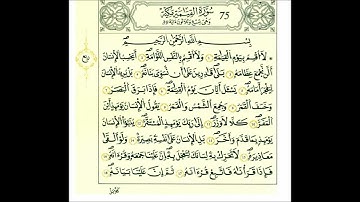 سُورَةُ الْقِيَامَةِ مَكِّيَّةٌ 75
بِسْمِ اللَّهِ الرَّحْمَٰنِ الرَّحِيمِ
لَا أُقْسِمُ بِيَوْمِ الْقِيَٰمَةِ وَلَا أُقْسِمُ بِالنَّفْسِ اللَّوَّامَةِ أَيَحْسَبُ الْإِنسَانُ
أَلَّن نَّجْمَعَ عِظَامَهُ بَلَىٰ قَادِرِينَ عَلَىٰ أَن نُّسَوِّيَ بَنَانَهُ بَلْ يُرِيدُ الْإِنسَانُ
لِيَفْجُرَ أَمَامَهُ يَسْـَٔلُ أَيَّانَ يَوْمُ الْقِيَٰمَةِ فَإِذَا بَرِقَ الْبَصَرُ
وَخَسَفَ الْقَمَرُ وَجُمِعَ الشَّمْسُ وَالْقَمَرُ يَقُولُ الْإِنسَانُ يَوْمَئِذٍ أَيْنَ
الْمَفَرُّ كَلَّا لَا وَزَرَ إِلَىٰ رَبِّكَ يَوْمَئِذٍ الْمُسْتَقَرُّ يُنَبَّؤُا الْإِنسَانُ
يَوْمَئِذٍ بِمَا قَدَّمَ وَأَخَّرَ بَلِ الْإِنسَانُ عَلَىٰ نَفْسِهِ بَصِيرَةٌ وَلَوْ أَلْقَىٰ
مَعَاذِيرَهُ لَا تُحَرِّكْ بِهِ لِسَانَكَ لِتَعْجَلَ بِهِ إِنَّ عَلَيْنَا جَمْعَهُ وَقُرْءَانَهُ
فَإِذَا قَرَأْنَاهُ فَاتَّبِعْ قُرْءَانَهُ ثُمَّ إِنَّ عَلَيْنَا بَيَانَهُ